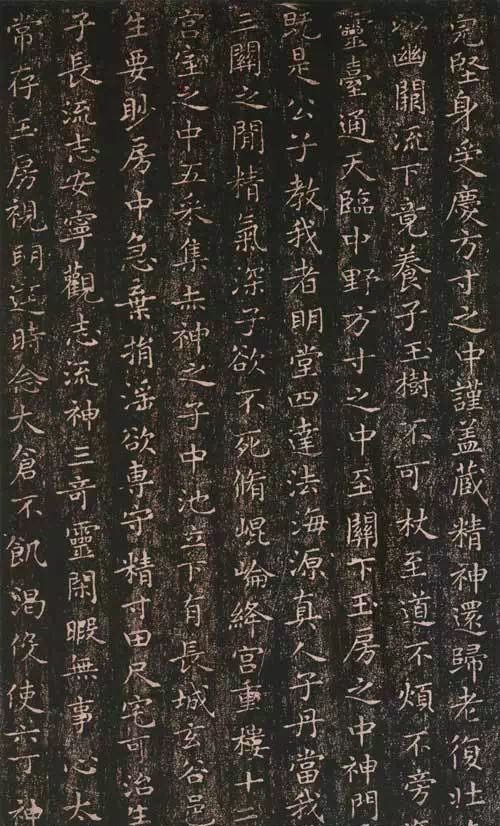 完堅身受慶方寸之中謹盖蔵精神還歸老復壯
以幽闕流下竟養子玉樹不可杖至道不煩不旁
靈臺通天臨中野方寸之中至關下玉房之中神門
既是公子教我者明堂四達法海源真人子丹當我
三關之間精氣深子欲不死脩崐崘絳宮重樓十二
宮室之中五采集赤神之子中池立下有長城玄谷邑
生要眇房中急棄捐淫欲專守精寸田尺宅可治生
子長流志安寧觀志流神三奇靈閑暇無事心太
常存玉房視明達時念大倉不飢渴役使六丁神